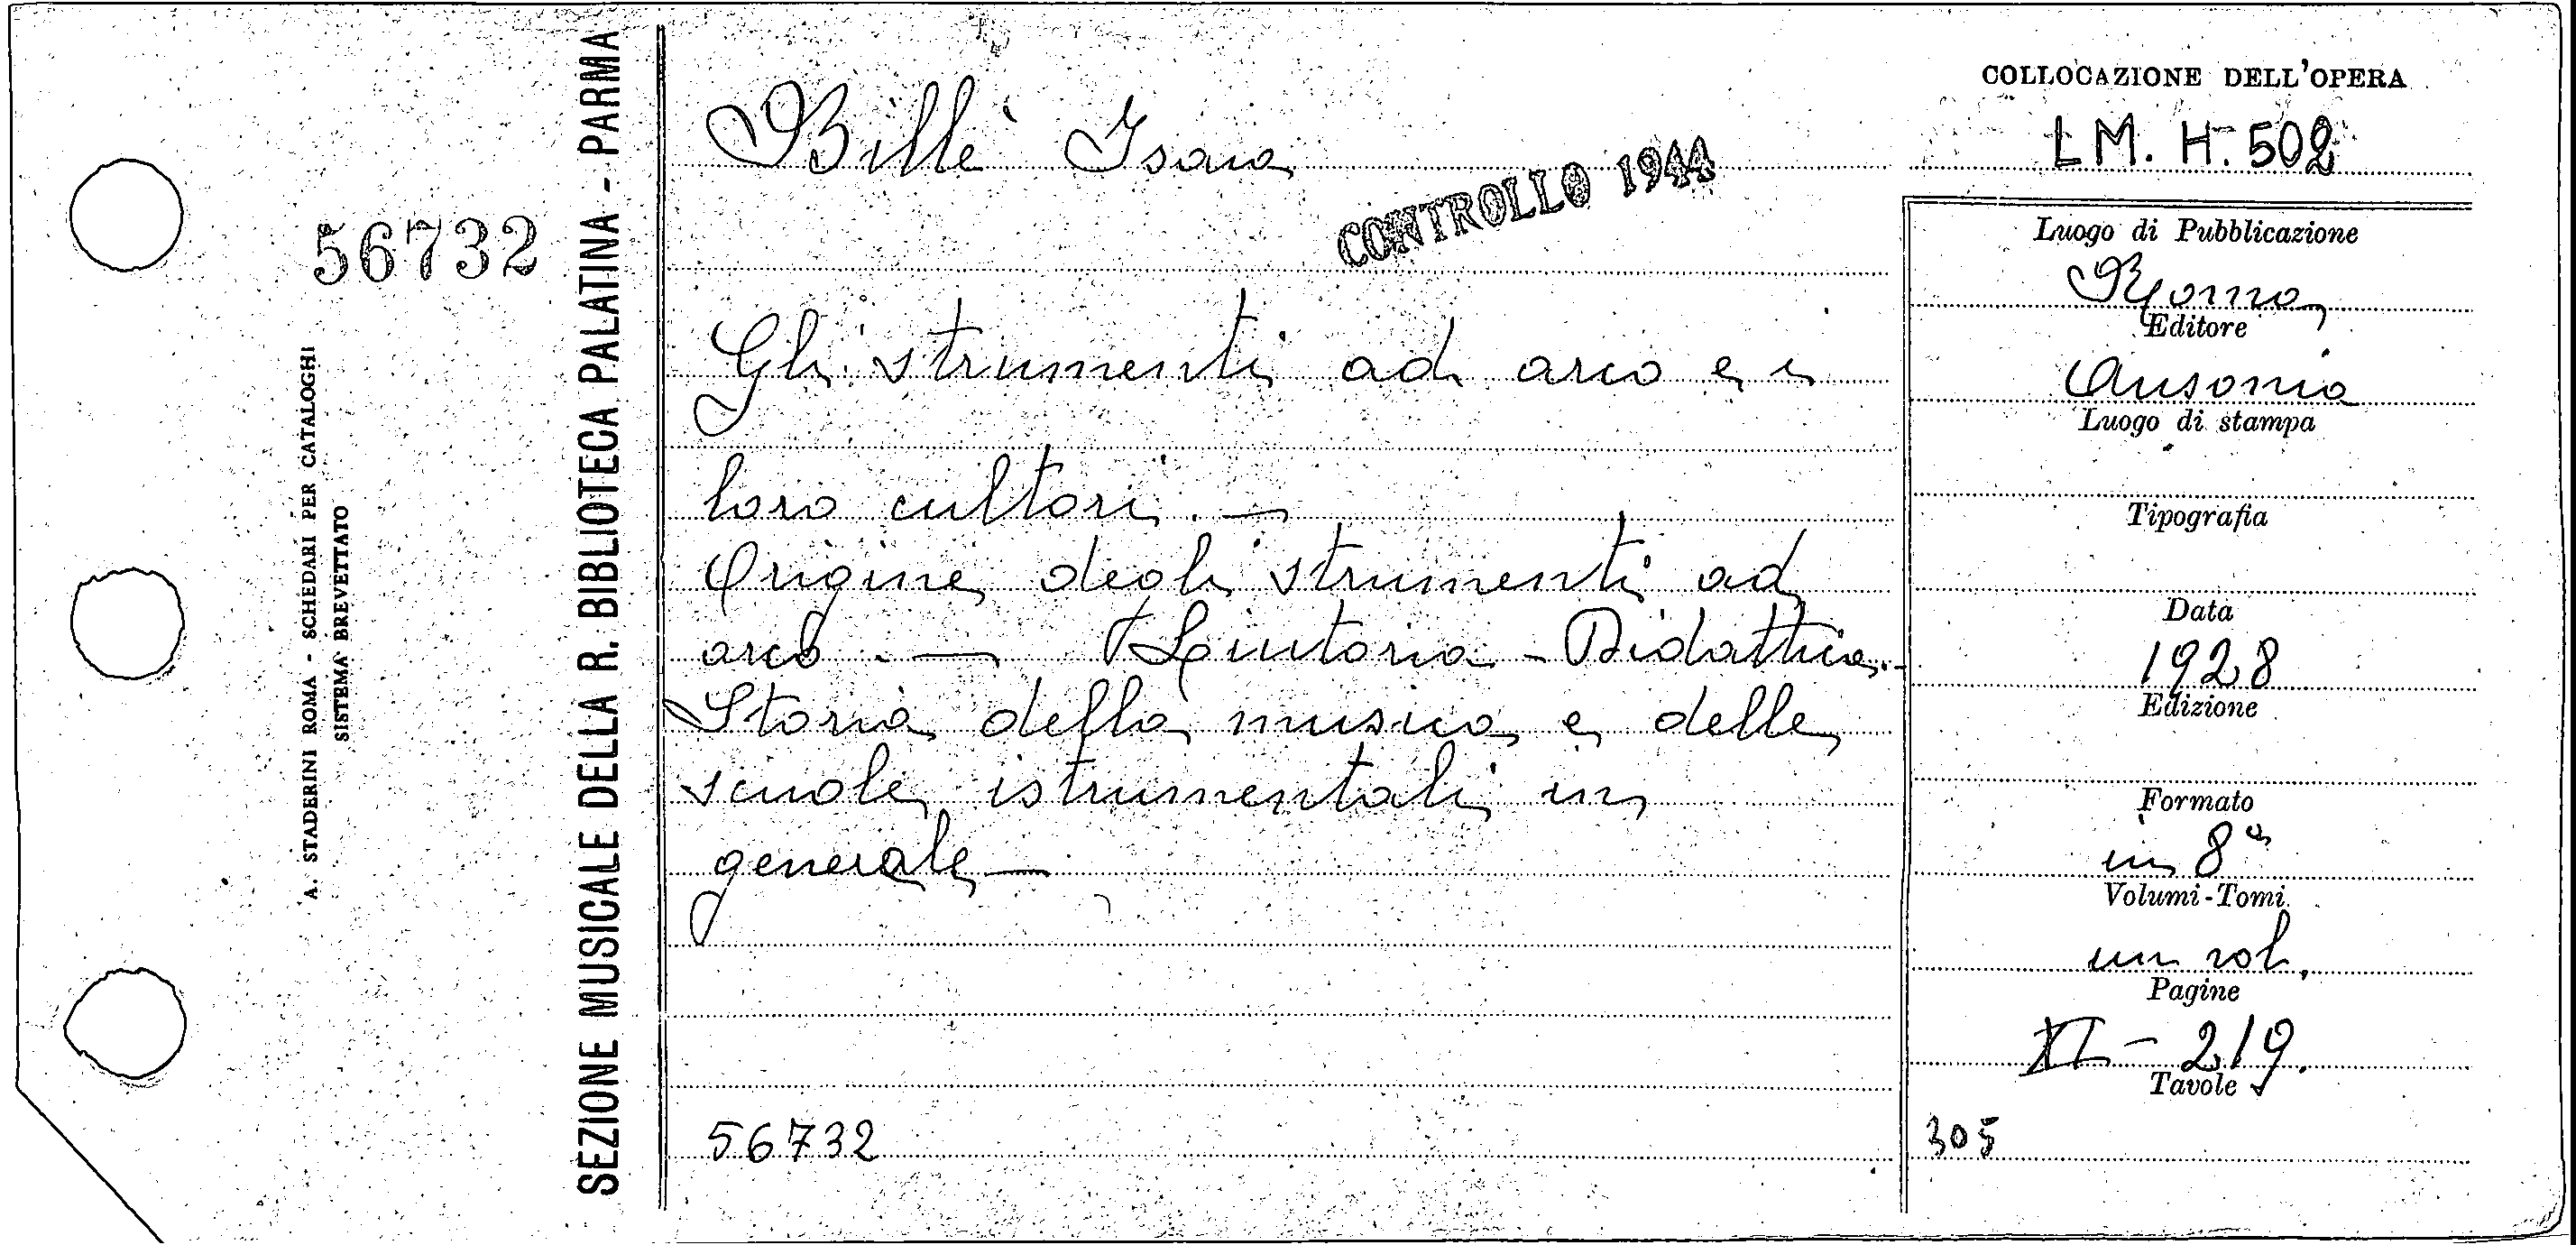 56732
A. STADERINI ROMA - SCHEDARI PER CATALOGHI
SISTEMA BREVETTATO
SEZIONE MUSICALE DELLA R. BIBLIOTECA PALATINA - PARMA
Billè Isaia
CONTROLLO 1944
Gli strumenti ad arco e i
loro cultori. —
Origine degli strumenti ad
arco. — Liutoria - Didattica. -
Storia della musica e delle
scuole istrumentali in
generale —
56732
COLLOCAZIONE DELL'OPERA
LM. H. 502
Luogo di Pubblicazione
Roma
Editore
Ausonia
Luogo di stampa
Tipografia
Data
1928
Edizione
Formato
in 8°
Volumi - Tomi
un vol.
Pagine
XI - 219.
Tavole
305